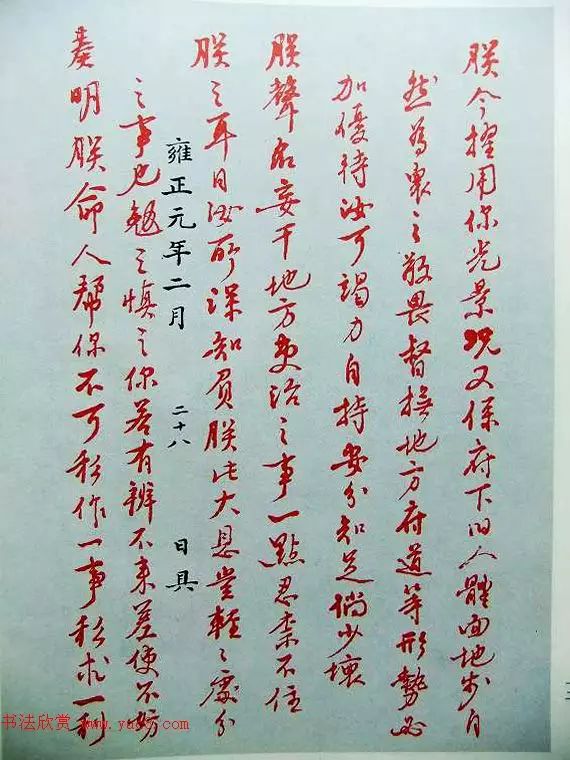 朕今擢用你光景況又係府下旧人體面地步自
然為衆之敬畏督撫地方府道等形勢必
加優待汝可竭力自持安分知足倘少壞
朕聲名妄干地方吏治之事一點忍柰不住
朕之耳目汝所深知負朕此大恩豈輕々處分
雍正元年二月 二十八 日具
之事也勉之慎之你若有辦不來差使不妨
奏明朕命人幫你不可私作一事私求一利
书法欣赏 www.yac8.com